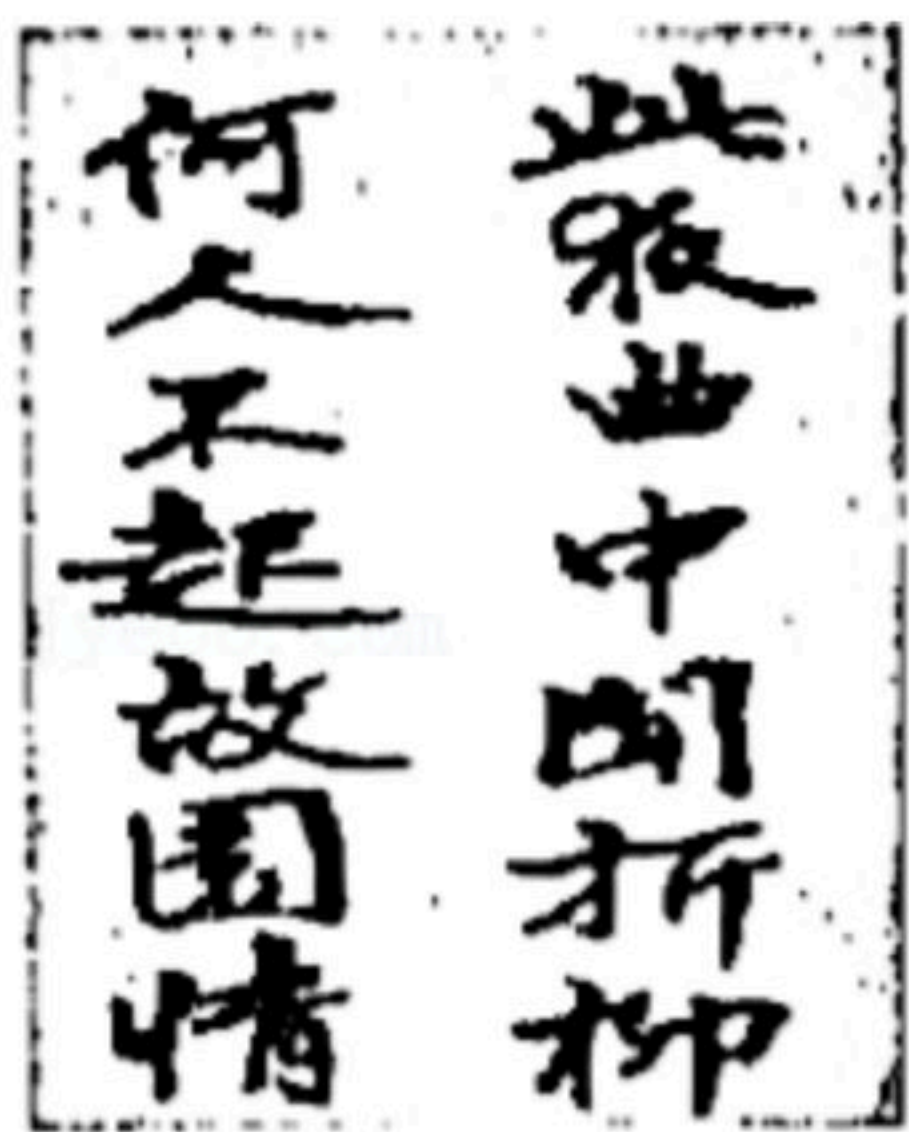 此夜曲中聞折柳
何人不起故園情